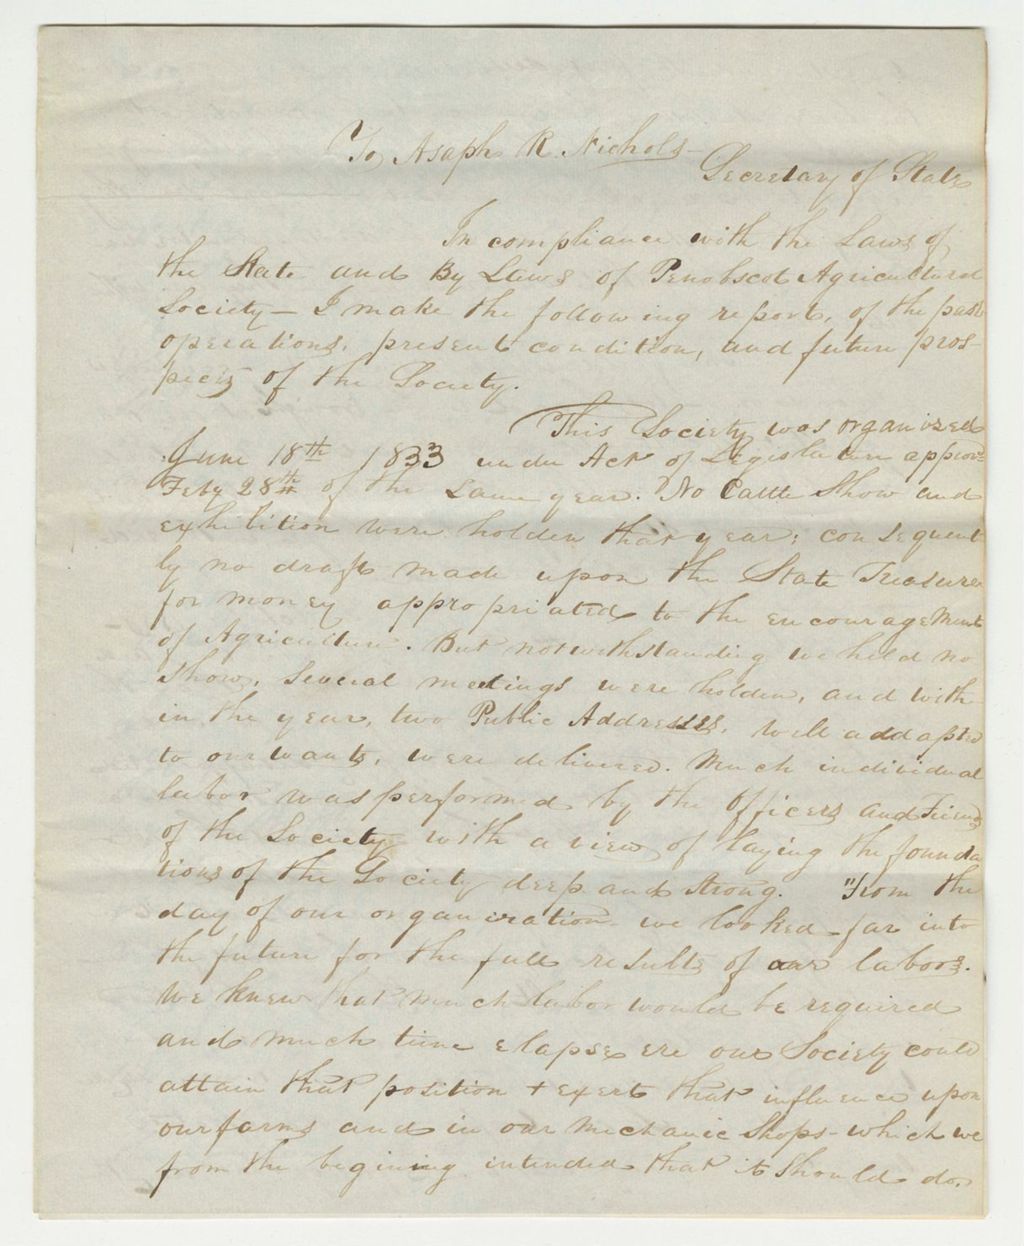 To Asaph R. Nichols -
Secretary of State
In compliance with the Laws of
the State and By Laws of Penobscot Agricultural
Society - I make the following report, of the past
operations, present condition, and future pros-
pects of the Society.
This Society was organized
June 18th 1833 under Act of Legislature approvd
Feby 28th of the same year. No Cattle Show and
exhibition were holden that year; consequent
ly no draft made upon the State Treasurer
for money appropriated to the encouragement
of Agriculture. But notwithstanding we held no
Show, several meetings were holden, and with-
in the year, two Public Addresses, well addapted
to our wants, were delivered. Much individual
labor was performed by the Officers and Friends
of the Society with a view of laying the founda
tions of the Society deep and strong. "From the
day of our organization we looked far into
the future for the full results of our labors.
We knew that much labor would be required
and much time elapse ere our Society could
attain that position + exert that influence upon
our farms and in our Mechanic Shops - which we
from the begining intended that it should do.